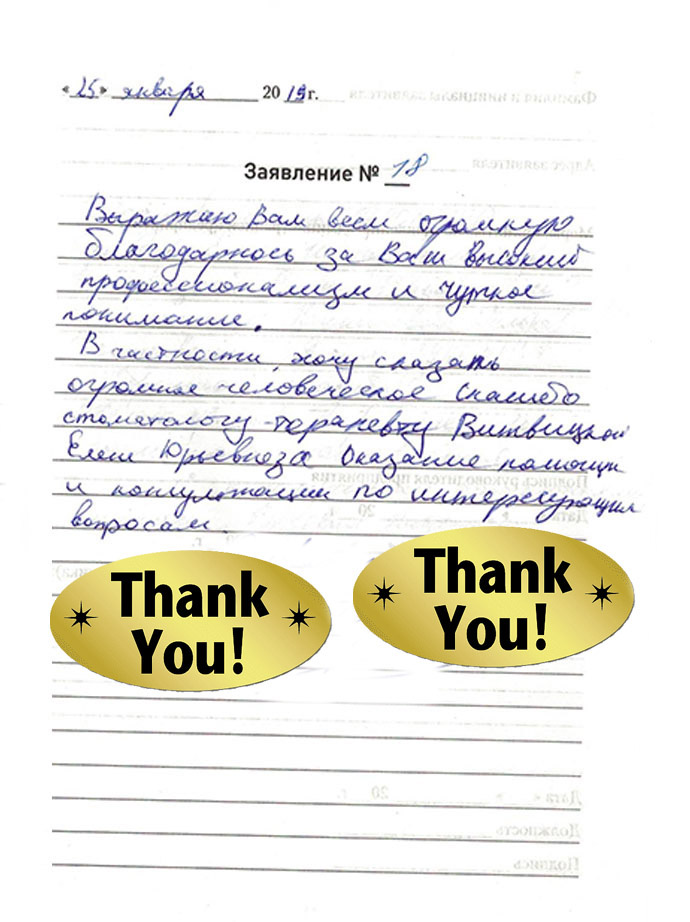 «25» января 2019 г.
Заявление № 18
Выражаю Вам всем огромную
благодарнось за Ваш высокий
профессионализм и чуткое
понимание.
В частности, хочу сказать
огромное человеческое спасибо
стоматологу-терапевту Витвицкой
Елене Юрьевне за оказание помощи
и консультации по интересующим
вопросам.
Thank
You!
Thank
You!
Фамилия и инициалы заявителя
Адрес заявителя
Подпись руководителя предприятия
Дата « » 20 г.
Должность
Подпись